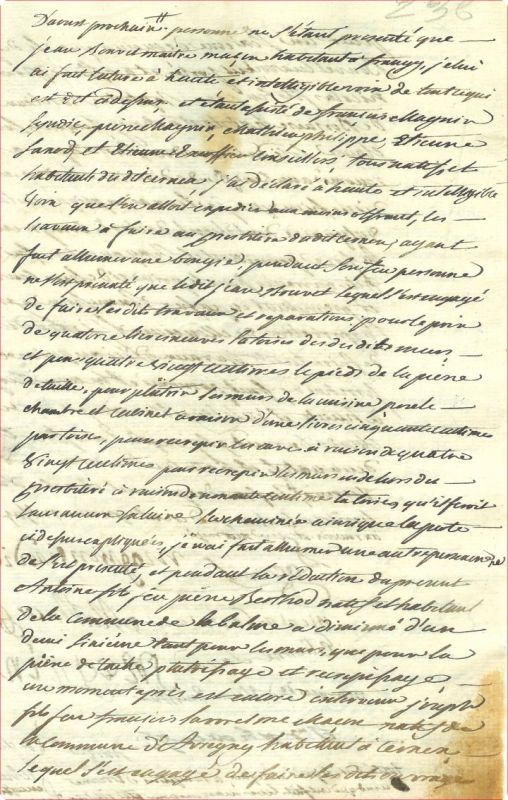 D'aoust prochain. personne ne s'étant presenté que
jean Bouvet maitre macon habitant à frangy, je lui
ai fait lecture à haute et intelligible voix de tout ce qui
est dit cy dessus et étant assisté de françois Magnin
Syndic, pierre Magnin, Mathieu philippe, Etienne
et Etienne Conseillers, tous natifs et
habitants dudit cernex j'ai declaré à haute et intelligible
voix que l'on alloit expedier aux moins offrant, les
travaux à faire au presbitere dudit Cernex, ayant
fait allumer une bougie, pendant son feu personne
ne s'est présenté, que ledit jean Bouvet lequel s'est engagé
de faire les dits travaux et reparations pour le prix
de quatorze livres neuves la toise des dits murs
et pour quatre vingt centimes le pied de la pierre
de taille, pour plâtrir les murs de la cuisine poele
chambre et cabinet à raison d'une livre cinquante centimes
par toise, pour recrepir la cave à raison de quatre
vingt centimes pour recrepir les murs en dehors du
presbitere à raison de nonante centimes la toise, qu'il feroit
sans aucun salaire la cheminée ainsi que la porte
cy dessus expliqués, j'ai fait allumer une autre personne ne
s'est présenté, et pendant la rédaction du present
Antoine fils feu pierre Berthod natif et habitant
de la Commune de la balme a diminué d'un
demi sixième tant pour les murs, que pour la
pierre de taille platrissage et recrepissage
un moment après est encore intervenu joseph
fils feu françois natif de
la commune d' habitant à Cernex
lequel s'est engagé de faire les dits ouvrage